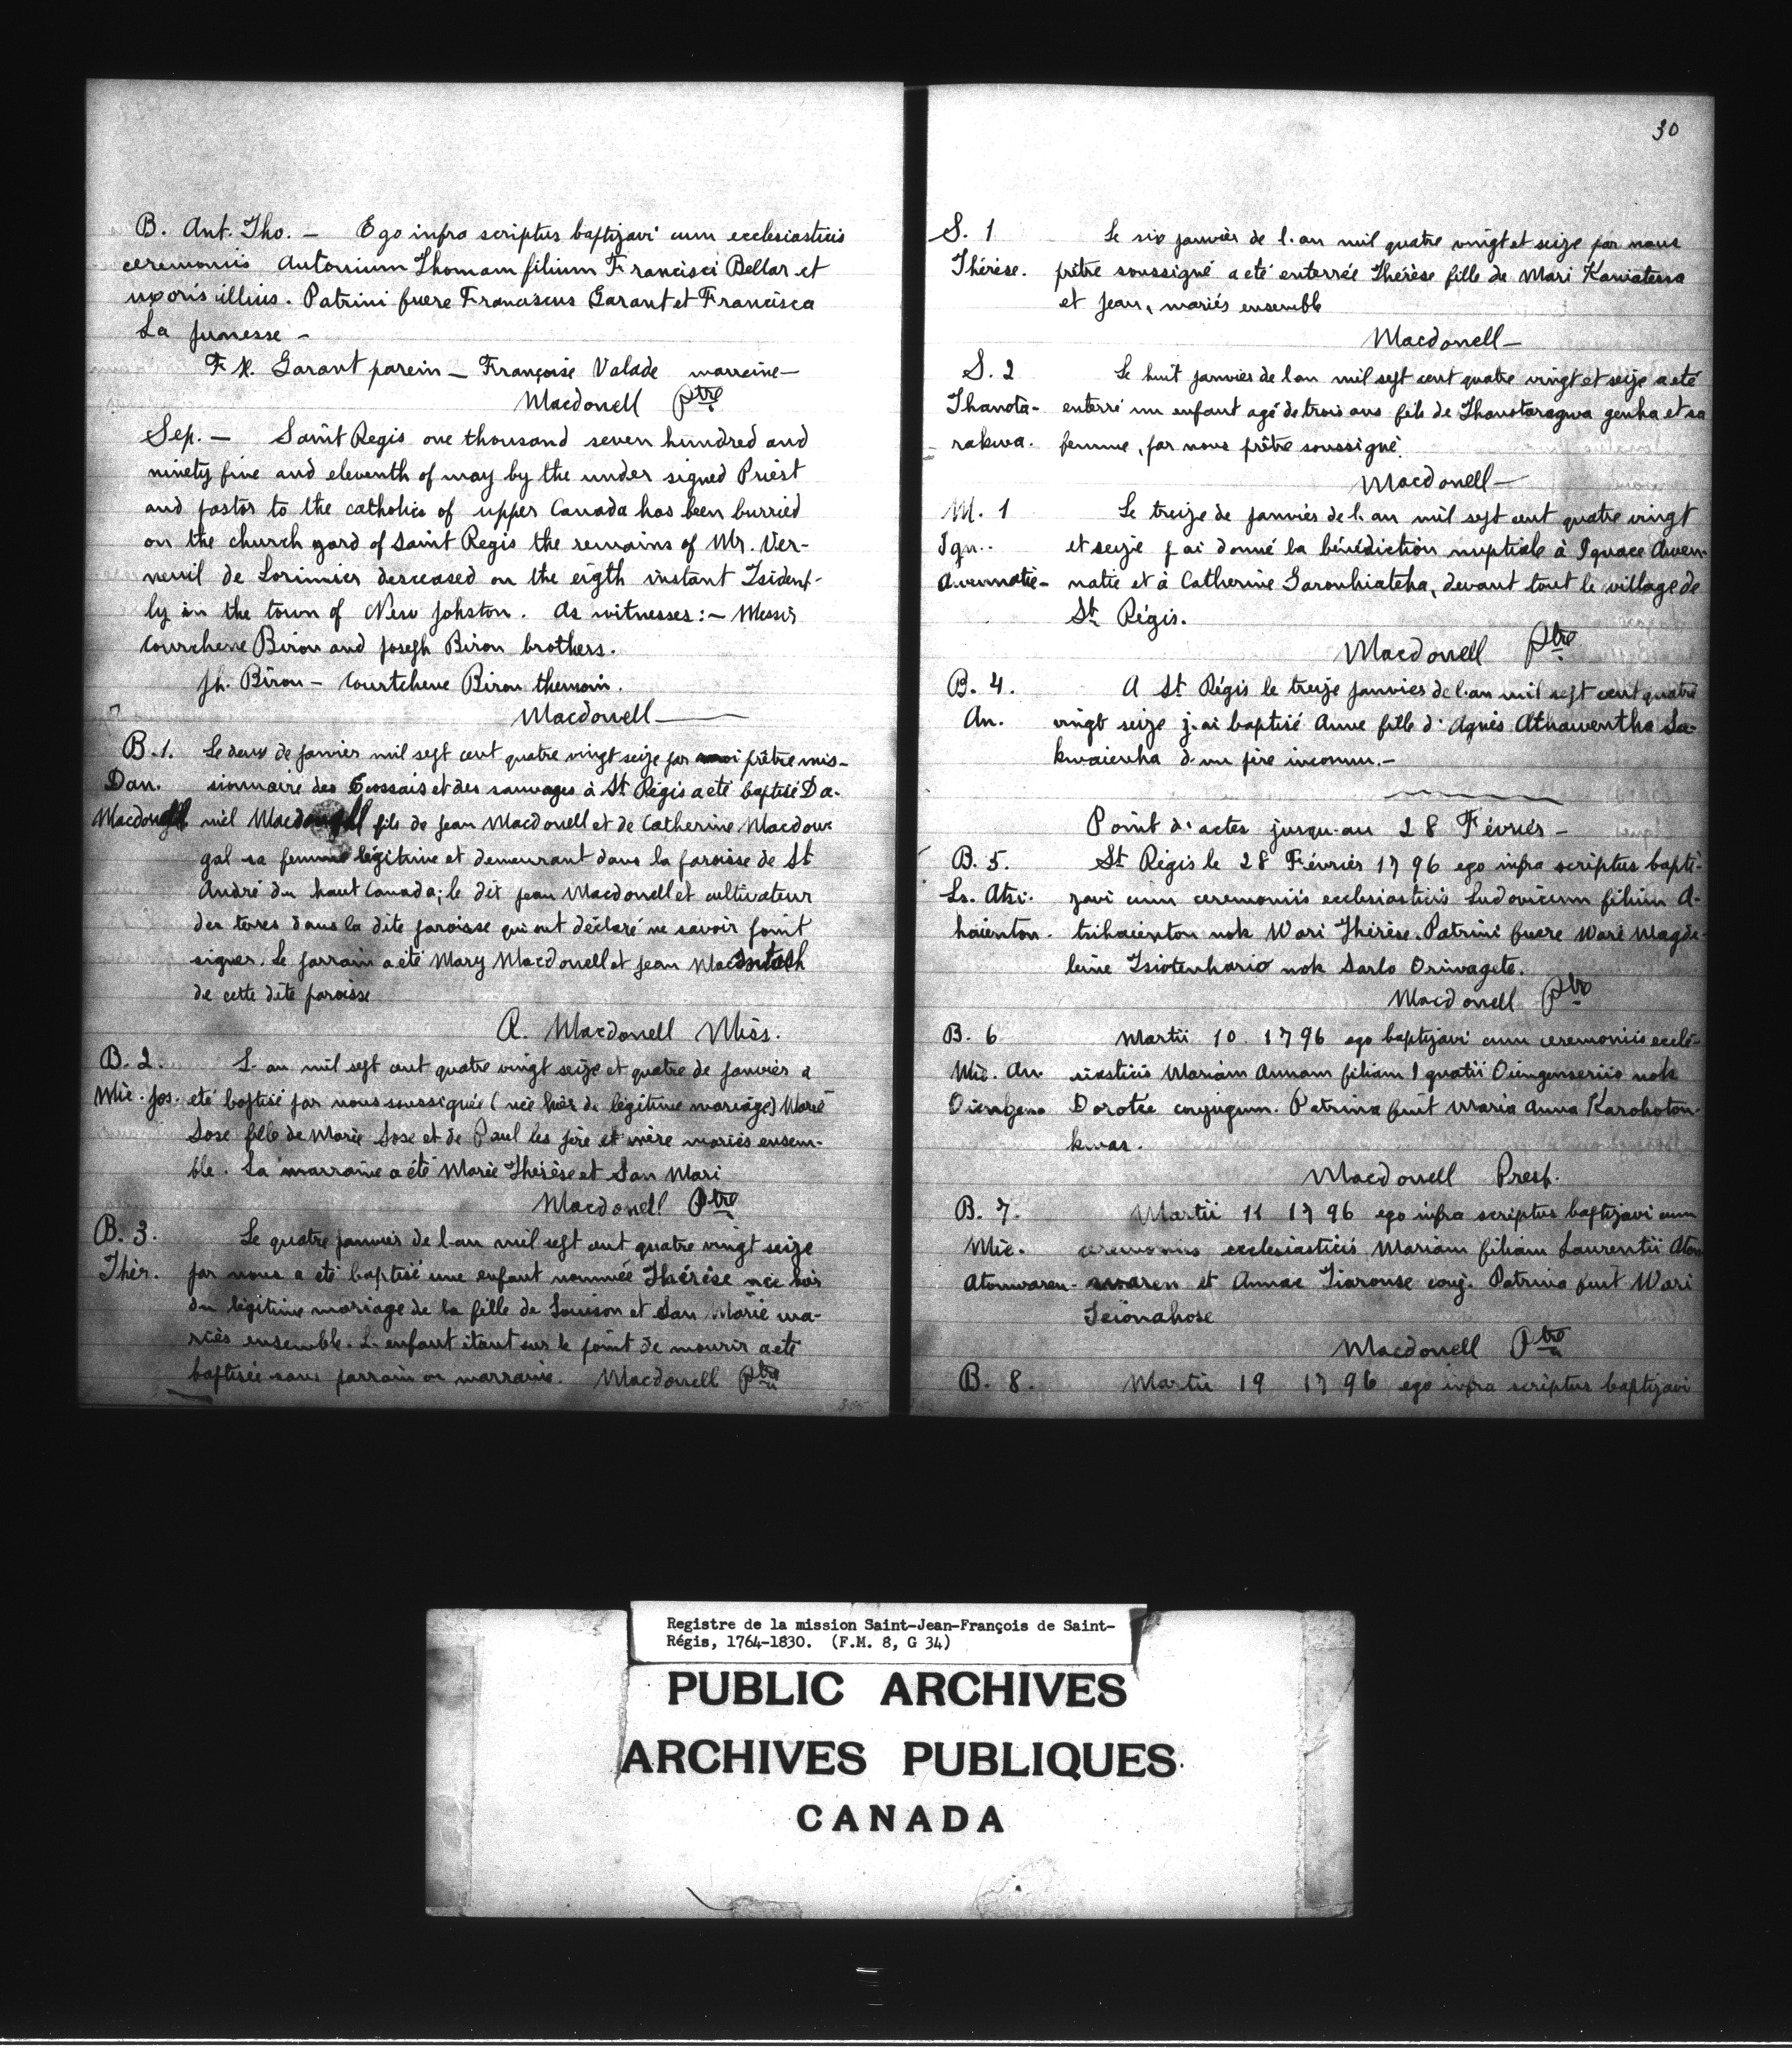 B. Ant. Tho. — Ego infra scriptus baptizavi cum ecclesiasticis
ceremoniis Antonium Thomam filium Francisci Bellar et
uxoris illius. Patrini fuere Franciscus Garant et Francisca
La Junesse —
Fx. Garant parein — Françoise Valade marreine —
Macdonell Ptre
Sep. — Saint Regis one thousand seven hundred and
ninety five and eleventh of may by the under signed Priest
and pastor to the catholics of upper Canada has been burried
on the church yard of Saint Regis the remains of Mr. Ver-
neuil de Lorimier desceased on the eigth instant
ly in the town of New Johston. As witnesses: — Messrs
Courchene Biron and Joseph Biron brothers.
Jh. Biron — Courtchene Biron themoin.
Macdonell —
B. 1. Le deux de janvier mil sept cent quatre vingt seize par moi prêtre mis-
Dan. sionnaire des Ecossais et des sauvages à St Régis a été baptisé Da-
Macdonell niel Macdonell fils de Jean Macdonell et de Catherine Macdou-
gal sa femme légitime et demeurant dans la paroisse de St
André du haut Canada; le dit Jean Macdonell et cultivateur
des terres dans la dite paroisse qui ont déclaré ne savoir point
signer. Le parrain a été Mary Macdonell et Jean Macintosh
de cette dite paroisse
R. Macdonell Miss.
B. 2. L'an mil sept cent quatre vingt seize et quatre de janvier a
Mie. Jos. été baptisé par nous soussignée (née hier de légitime mariage) Marie
Sose fille de Marie Sose et de Paul les père et mère mariés ensem-
ble. La marraine a été Marie Thérèse et San Mari
Macdonell Ptre
B. 3. Le quatre janvier de l'an mil sept cent quatre vingt seize
Thér. par nous a été baptisé une enfant nommée Thérèse née hier
du légitime mariage de la fille de Louison et San Marie ma-
riés ensemble. L'enfant étant sur le point de mourir a été
baptisée sans parrain ou marraine. Macdonell Ptre
30
S. 1 Le six janvier de l'an mil quatre vingt et seize par nous
Thérèse. prêtre soussigné a été enterrée Thérèse fille de Mari Kaniatessa
et Jean, mariés ensemble
Macdonell —
S. 2 Le huit janvier de l'an mil sept cent quatre vingt et seize a été
Thanota- enterré un enfant agé de trois ans fils de Thanotaragwa genha et sa
rakwa. femme, par nous prêtre soussigné.
Macdonell —
M. 1 Le treize de janvier de l'an mil sept cent quatre vingt
Ign. et seize j'ai donné la bénédiction nuptiale à Ignace Awen-
Awennatie- natie et à Catherine Garonhiatcha, devant tout le village de
St Régis.
Macdonell Ptre
B. 4. A St Régis le treize janvier de l'an mil sept cent quatre
An. vingt seize j'ai baptisé Anne fille d'Agnès Atnawentha Sa-
kwaienha d'un père inconnu. —
Point d'actes jusqu'au 28 Février —
B. 5. St Régis le 28 Février 1796 ego infra scriptus bapti-
Ls. Atsi- zavi cum ceremoniis ecclesiasticis Ludovicum filium A-
haienton. tsihaienton nok Wari Thérèse. Patrini fuere Wari Magde-
leine Tsiotenhario nok Sarlo Oriwagete.
Macdonell Ptre
B. 6 Martii 10 1796 ego baptizavi cum ceremoniis eccle-
Mie. An. siasticis Mariam Annam filiam Ignatii Oiengenseriio nok
Dorotee conjugum. Patrina fuit Maria Anna Karohoton-
kwas.
Macdonell Presp.
B. 7. Martii 11 1796 ego infra scriptus baptizavi cum
Mie. ceremoniis ecclesiasticis Mariam filiam Laurentii Aton
Atonwaren- waren et Annae Tiaronse conj. Patrina fuit Wari
Teionahose
Macdonell Ptre
B. 8. Martii 19 1796 ego infra scriptus baptizavi
Registre de la mission Saint-Jean-François de Saint-
Régis, 1764-1830. (F.M. 8, G 34)
PUBLIC ARCHIVES
ARCHIVES PUBLIQUES
CANADA